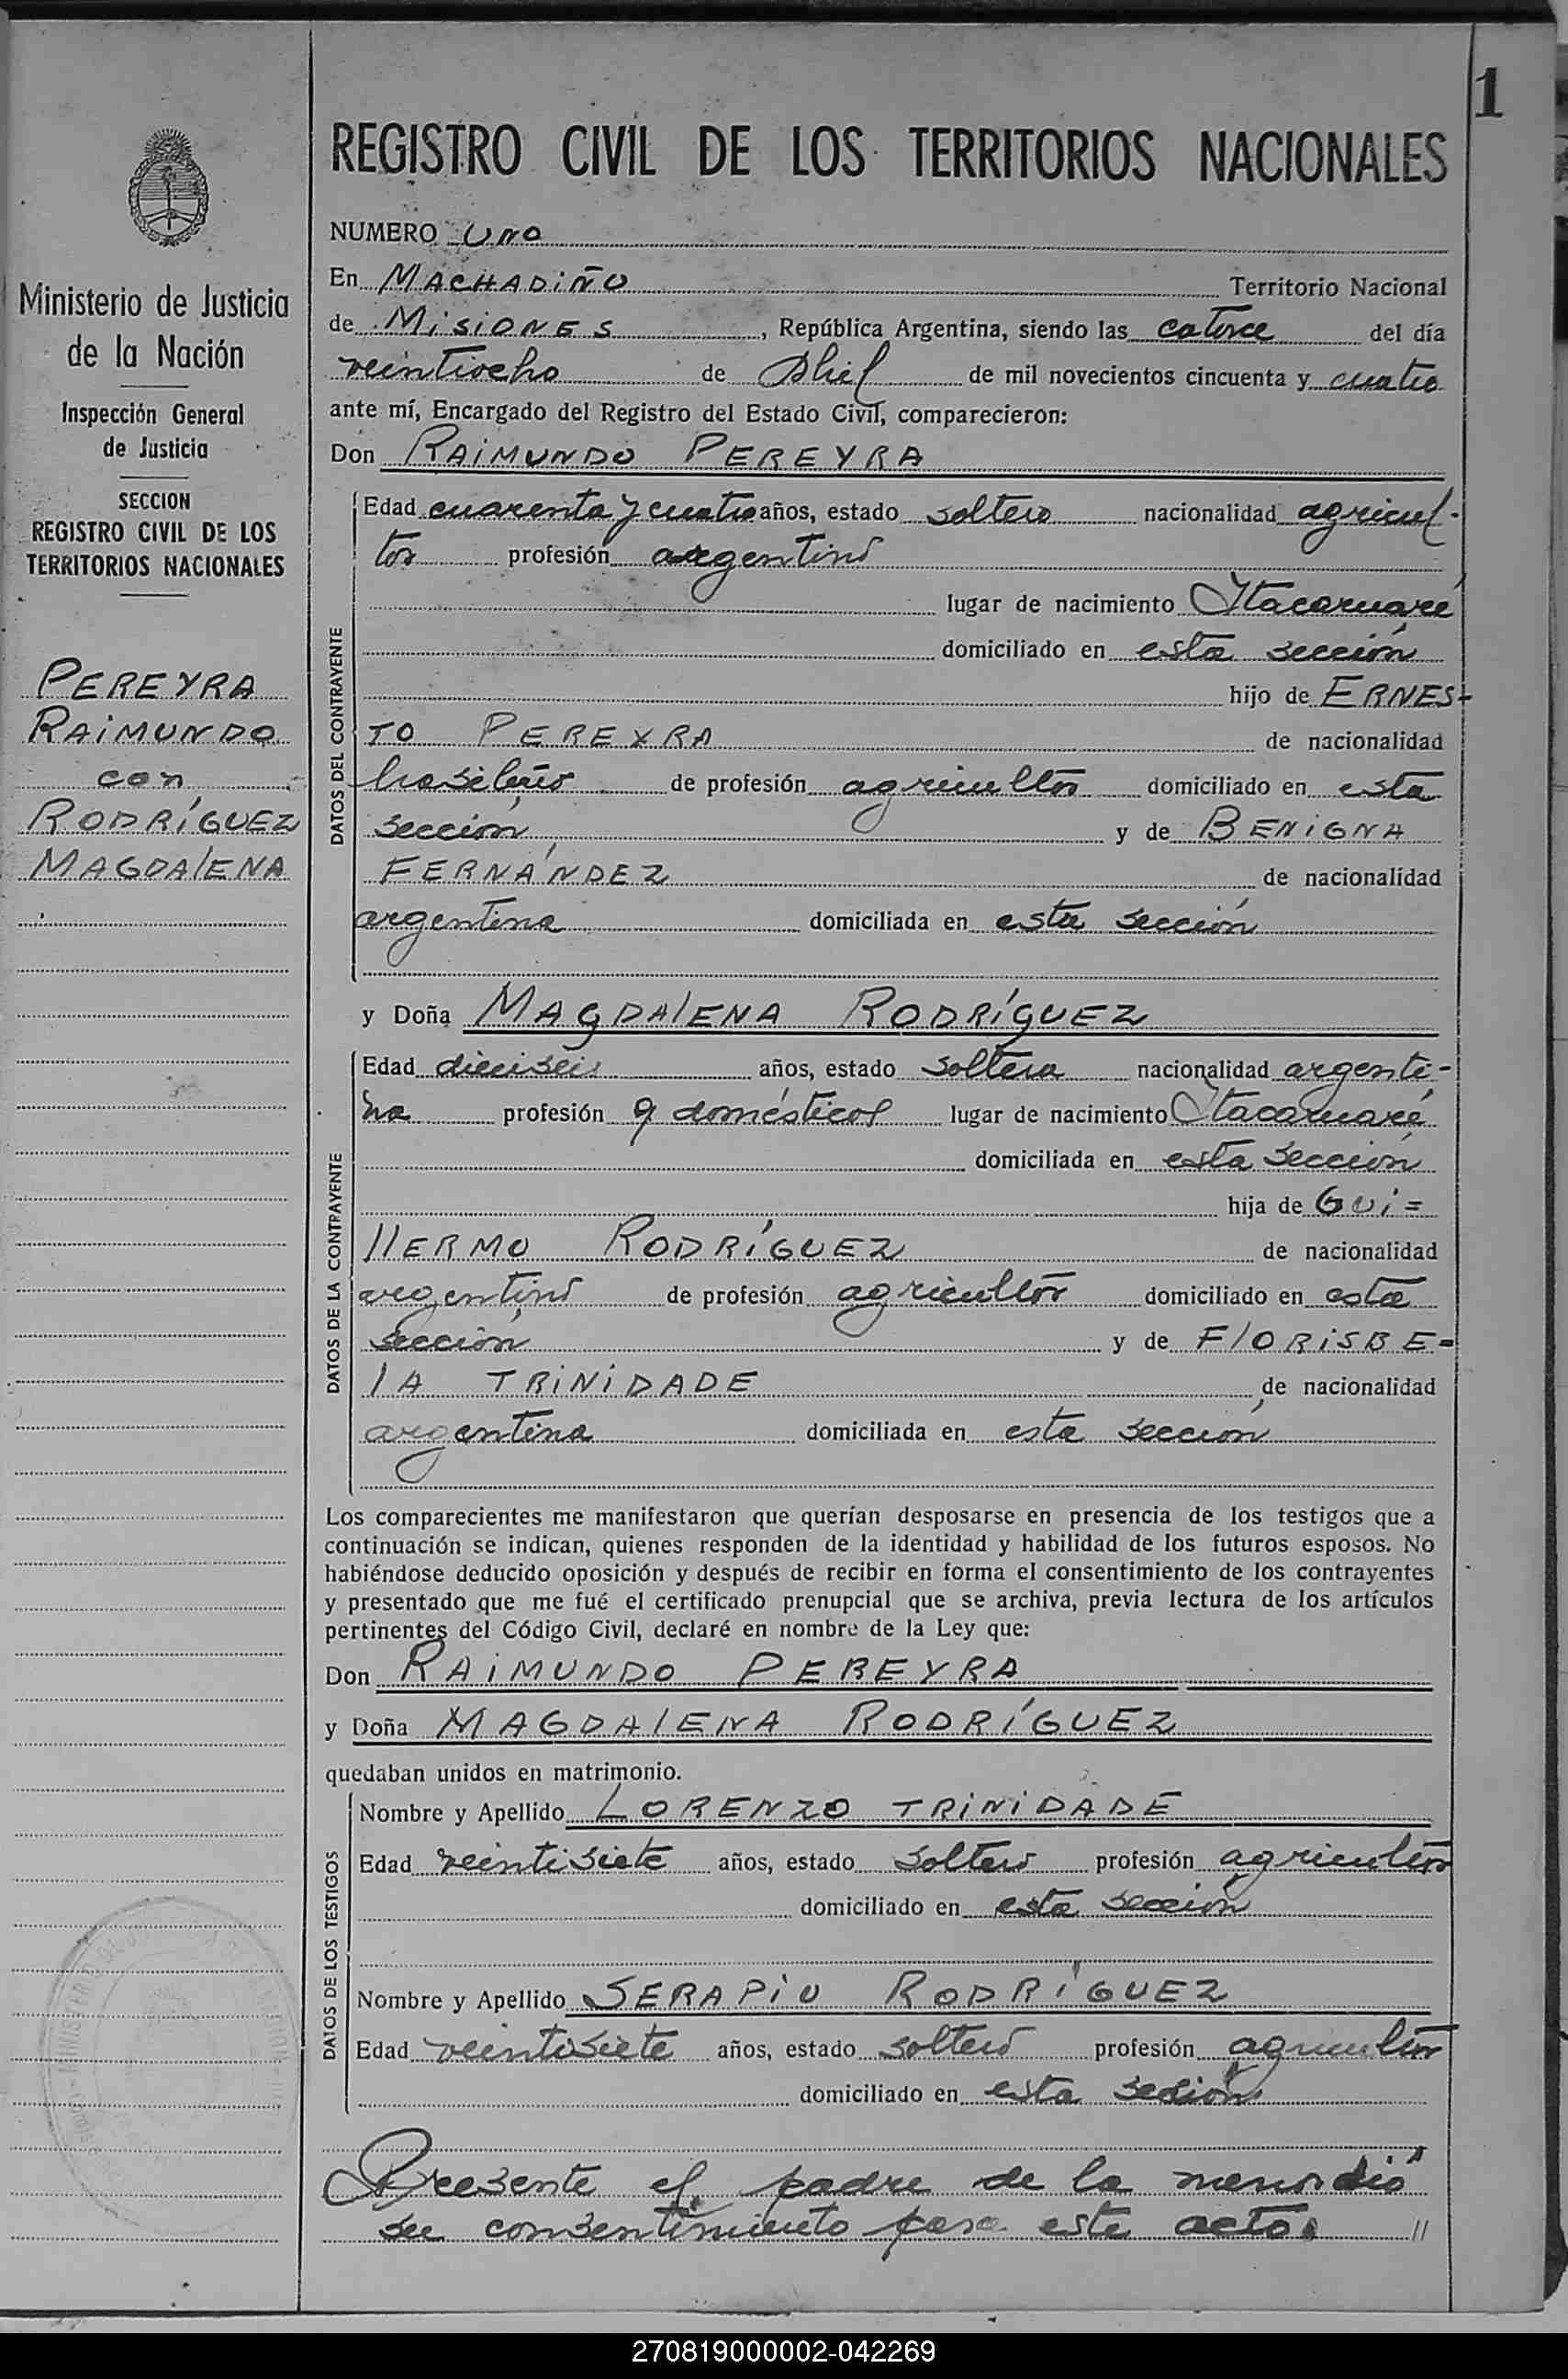 1
REGISTRO CIVIL DE LOS TERRITORIOS NACIONALES
Ministerio de Justicia
de la Nación
Inspección General
de Justicia
SECCION
REGISTRO CIVIL DE LOS
TERRITORIOS NACIONALES
PEREYRA
RAIMUNDO
con
RODRÍGUEZ
MAGDALENA
NUMERO UNO
En MACHADIÑO Territorio Nacional
de MISIONES, República Argentina, siendo las catorce del día
veintiocho de Abril de mil novecientos cincuenta y cuatro
ante mí, Encargado del Registro del Estado Civil, comparecieron:
Don RAIMUNDO PEREYRA
DATOS DEL CONTRAYENTE
Edad cuarenta y cuatro años, estado soltero nacionalidad agricul-
tor profesión argentino
lugar de nacimiento Itacaruaré
domiciliado en esta sección
hijo de ERNES-
TO PEREYRA de nacionalidad
brasileño de profesión agricultor domiciliado en esta
sección y de BENIGNA
FERNÁNDEZ de nacionalidad
argentina domiciliada en esta sección
y Doña MAGDALENA RODRÍGUEZ
DATOS DE LA CONTRAYENTE
Edad dieciséis años, estado soltera nacionalidad argenti-
na profesión q domésticos lugar de nacimiento Itacaruaré
domiciliada en esta sección
hija de GUI=
LLERMO RODRÍGUEZ de nacionalidad
argentino de profesión agricultor domiciliado en esta
sección y de FLORISBE=
LA TRINIDADE de nacionalidad
argentina domiciliada en esta sección
Los comparecientes me manifestaron que querían desposarse en presencia de los testigos que a
continuación se indican, quienes responden de la identidad y habilidad de los futuros esposos. No
habiéndose deducido oposición y después de recibir en forma el consentimiento de los contrayentes
y presentado que me fué el certificado prenupcial que se archiva, previa lectura de los artículos
pertinentes del Código Civil, declaré en nombre de la Ley que:
Don RAIMUNDO PEREYRA
y Doña MAGDALENA RODRÍGUEZ
quedaban unidos en matrimonio.
DATOS DE LOS TESTIGOS
Nombre y Apellido LORENZO TRINIDADE
Edad veintisiete años, estado soltero profesión agricultor
domiciliado en esta sección
Nombre y Apellido SERAPIO RODRÍGUEZ
Edad veintisiete años, estado soltero profesión agricultor
domiciliado en esta sección
Presente el padre de la menor dió
su consentimiento para este acto. //
270819000002-042269